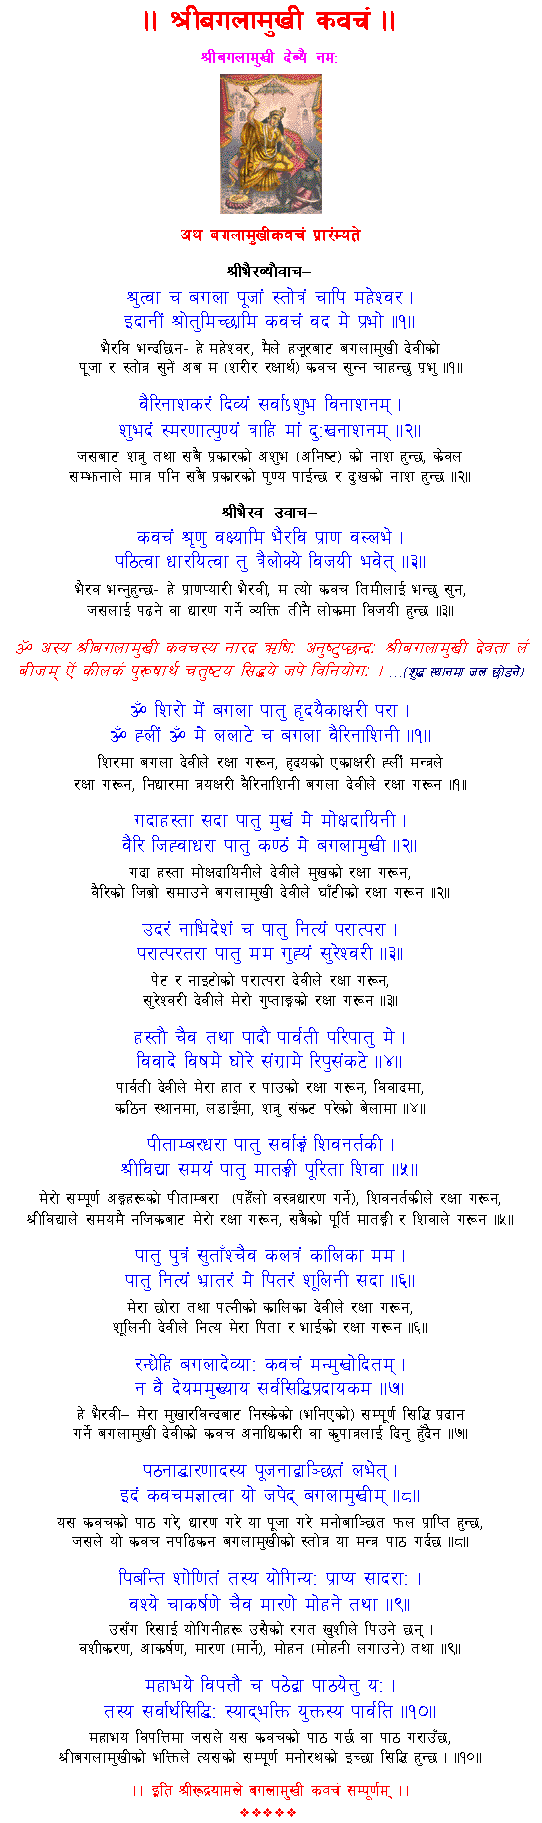 ॥ श्रीबगलामुखी कवचं ॥
श्रीबगलामुखी देव्यै नम:
अथ बगलामुखीकवचं प्रारंम्यते
श्रीभैरव्यौवाच–
श्रुत्वा च बगला पूजां स्तोत्रं चापि महेश्वर ।
इदानीं श्रोतुमिच्छामि कवचं वद मे प्रभो ॥१॥
भैरवि भन्दछिन- हे महेश्वर, मैले हजूरबाट बगलामुखी देवीको
पूजा र स्तोत्र सुनें अब म (शरीर रक्षार्थ) कवच सुन्न चाहन्छु प्रभु ॥१॥
वैरिनाशकरं दिव्यं सर्वाऽशुभ विनाशनम् ।
शुभदं स्मरणात्पुण्यं त्राहि मां दु:खनाशनम् ॥२॥
जसबाट शत्रु तथा सबै प्रकारको अशुभ (अनिष्ट) को नाश हुन्छ, केवल
सम्झनाले मात्र पनि सबै प्रकारको पुण्य पाईन्छ र दुःखको नाश हुन्छ ॥२॥
श्रीभैरव उवाच–
कवचं श्रृणु वक्ष्यामि भैरवि प्राण वल्लभे ।
पठित्वा धारयित्वा तु त्रैलोक्ये विजयी भवेत् ॥३॥
भैरव भन्नुहुन्छ- हे प्राणप्यारी भैरवी, म त्यो कवच तिमीलाई भन्छु सुन,
जसलाई पढने वा धारण गर्ने व्यक्ति तीनै लोकमा विजयी हुन्छ ॥३॥
ॐ अस्य श्रीबगलामुखी कवचस्य नारद ऋषि: अनुष्टुप्छन्द: श्रीबगलामुखी देवता लं
बीजम् ऐं कीलकं पुरूषार्थ चतुष्टय सिद्धये जपे विनियोग: । ...(शुद्ध स्थानमा जल छोडने)
ॐ शिरो में बगला पातु हृदयैकाक्षरी परा ।
ॐ ह्लीं ॐ मे ललाटे च बगला वैरिनाशिनी ॥१॥
शिरमा बगला देवीले रक्षा गरून, हृदयको एकाक्षरी ह्लीं मन्त्रले
रक्षा गरून, निधारमा त्रयक्षरी वैरिनाशिनी बगला देवीले रक्षा गरून ॥१॥
गदाहस्ता सदा पातु मुखं मे मोक्षदायिनी ।
वैरि जिह्वाधरा पातु कण्ठं मे बगलामुखी ॥२॥
गदा हस्ता मोक्षदायिनीले देवीले मुखको रक्षा गरून,
वैरिको जिब्रो समाउने बगलामुखी देवीले घाँटीको रक्षा गरून ॥२॥
उदरं नाभिदेशं च पातु नित्यं परात्परा ।
परात्परतरा पातु मम गुह्यं सुरेश्वरी ॥३॥
पेट र नाइटोको परात्परा देवीले रक्षा गरून,
सुरेश्वरी देवीले मेरो गुप्ताङ्गको रक्षा गरून ॥३॥
हस्तौ चैव तथा पादौ पार्वती परिपातु मे ।
विवादे विषमे घोरे संग्रामे रिपुसंकटे ॥४॥
पार्वती देवीले मेरा हात र पाउको रक्षा गरून, विवादमा,
कठिन स्थानमा, लडाइँमा, शत्रु संकट परेको बेलामा ॥४॥
पीताम्बरधरा पातु सर्वाङ्गं शिवनर्तकी ।
श्रीविद्या समयं पातु मातङ्गी पूरिता शिवा ॥५॥
मेरो सम्पूर्ण अङ्गहरूको पीताम्बरा (पहेँलो वस्त्रधारण गर्ने), शिवनर्तकीले रक्षा गरून,
श्रीविद्याले समयमै नजिकबाट मेरो रक्षा गरून, सबैको पूर्ति मातङ्गी र शिवाले गरून ॥५॥
पातु पुत्रं सुताँश्चैव कलत्रं कालिका मम ।
पातु नित्यं भ्रातरं मे पितरं शूलिनी सदा ॥६॥
मेरा छोरा तथा पत्नीको कालिका देवीले रक्षा गरून,
शूलिनी देवीले नित्य मेरा पिता र भाईको रक्षा गरून ॥६॥
रन्ध्रेहि बगलादेव्या: कवचं मन्मुखोदितम् ।
न वै देयममुख्याय सर्वसिद्धिप्रदायकम ॥७॥
हे भैरवी– मेरा मुखारविन्दबाट निस्केको (भनिएको) सम्पूर्ण सिद्धि प्रदान
गर्ने बगलामुखी देवीको कवच अनाधिकारी वा कुपात्रलाई दिनु हुँदैन ॥७॥
पठनाद्धारणादस्य पूजनाद्वाञ्छितं लभेत् ।
इदं कवचमज्ञात्वा यो जपेद् बगलामुखीम् ॥८॥
यस कवचको पाठ गरे, धारण गरे या पूजा गरे मनोबाञ्छित फल प्राप्ति हुन्छ,
जसले यो कवच नपढिकन बगलामुखीको स्तोत्र या मन्त्र पाठ गर्दछ ॥८॥
पिबन्ति शोणितं तस्य योगिन्य: प्राप्य सादरा: ।
वश्ये चाकर्षणे चैव मारणे मोहने तथा ॥९॥
उसँग रिसाई योगिनीहरू उसैको रगत खुशीले पिउने छन् ।
वशीकरण, आकर्षण, मारण (मार्ने), मोहन (मोहनी लगाउने) तथा ॥९॥
महाभये विपत्तौ च पठेद्वा पाठयेत्तु य: ।
तस्य सर्वार्थसिद्धि: स्याद्भक्ति युक्तस्य पार्वति ॥१०॥
महाभय विपत्तिमा जसले यस कवचको पाठ गर्छ वा पाठ गराउँछ,
श्रीबगलामुखीको भक्तिले त्यसको सम्पूर्ण मनोरथको इच्छा सिद्धि हुन्छ । ॥१०॥
।। इति श्रीरूद्रयामले बगलामुखी कवचं सम्पूर्णम् ।।